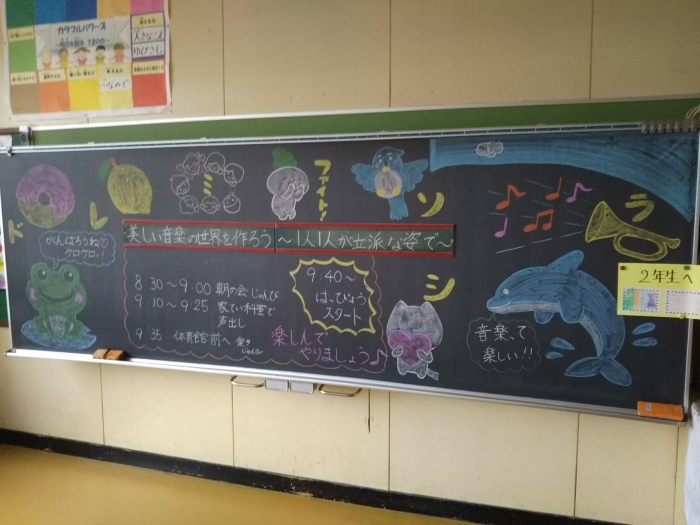 カラフルパワーズ
ド
レ
ミ
ファイト!
ソ
ラ
シ
美しい音楽の世界を作ろう ～1人1人が立派な姿で～
がんばろうね♡
ケロケロ!!
8 30～9:00 朝の会 じゅんび
9:10～9:25 家てい科室で
声出し
9 35 体育館前へ
9:40～
はっぴょう
スタート
楽しんで
やりましょう♪
音楽って
楽しい!!
2年生へ